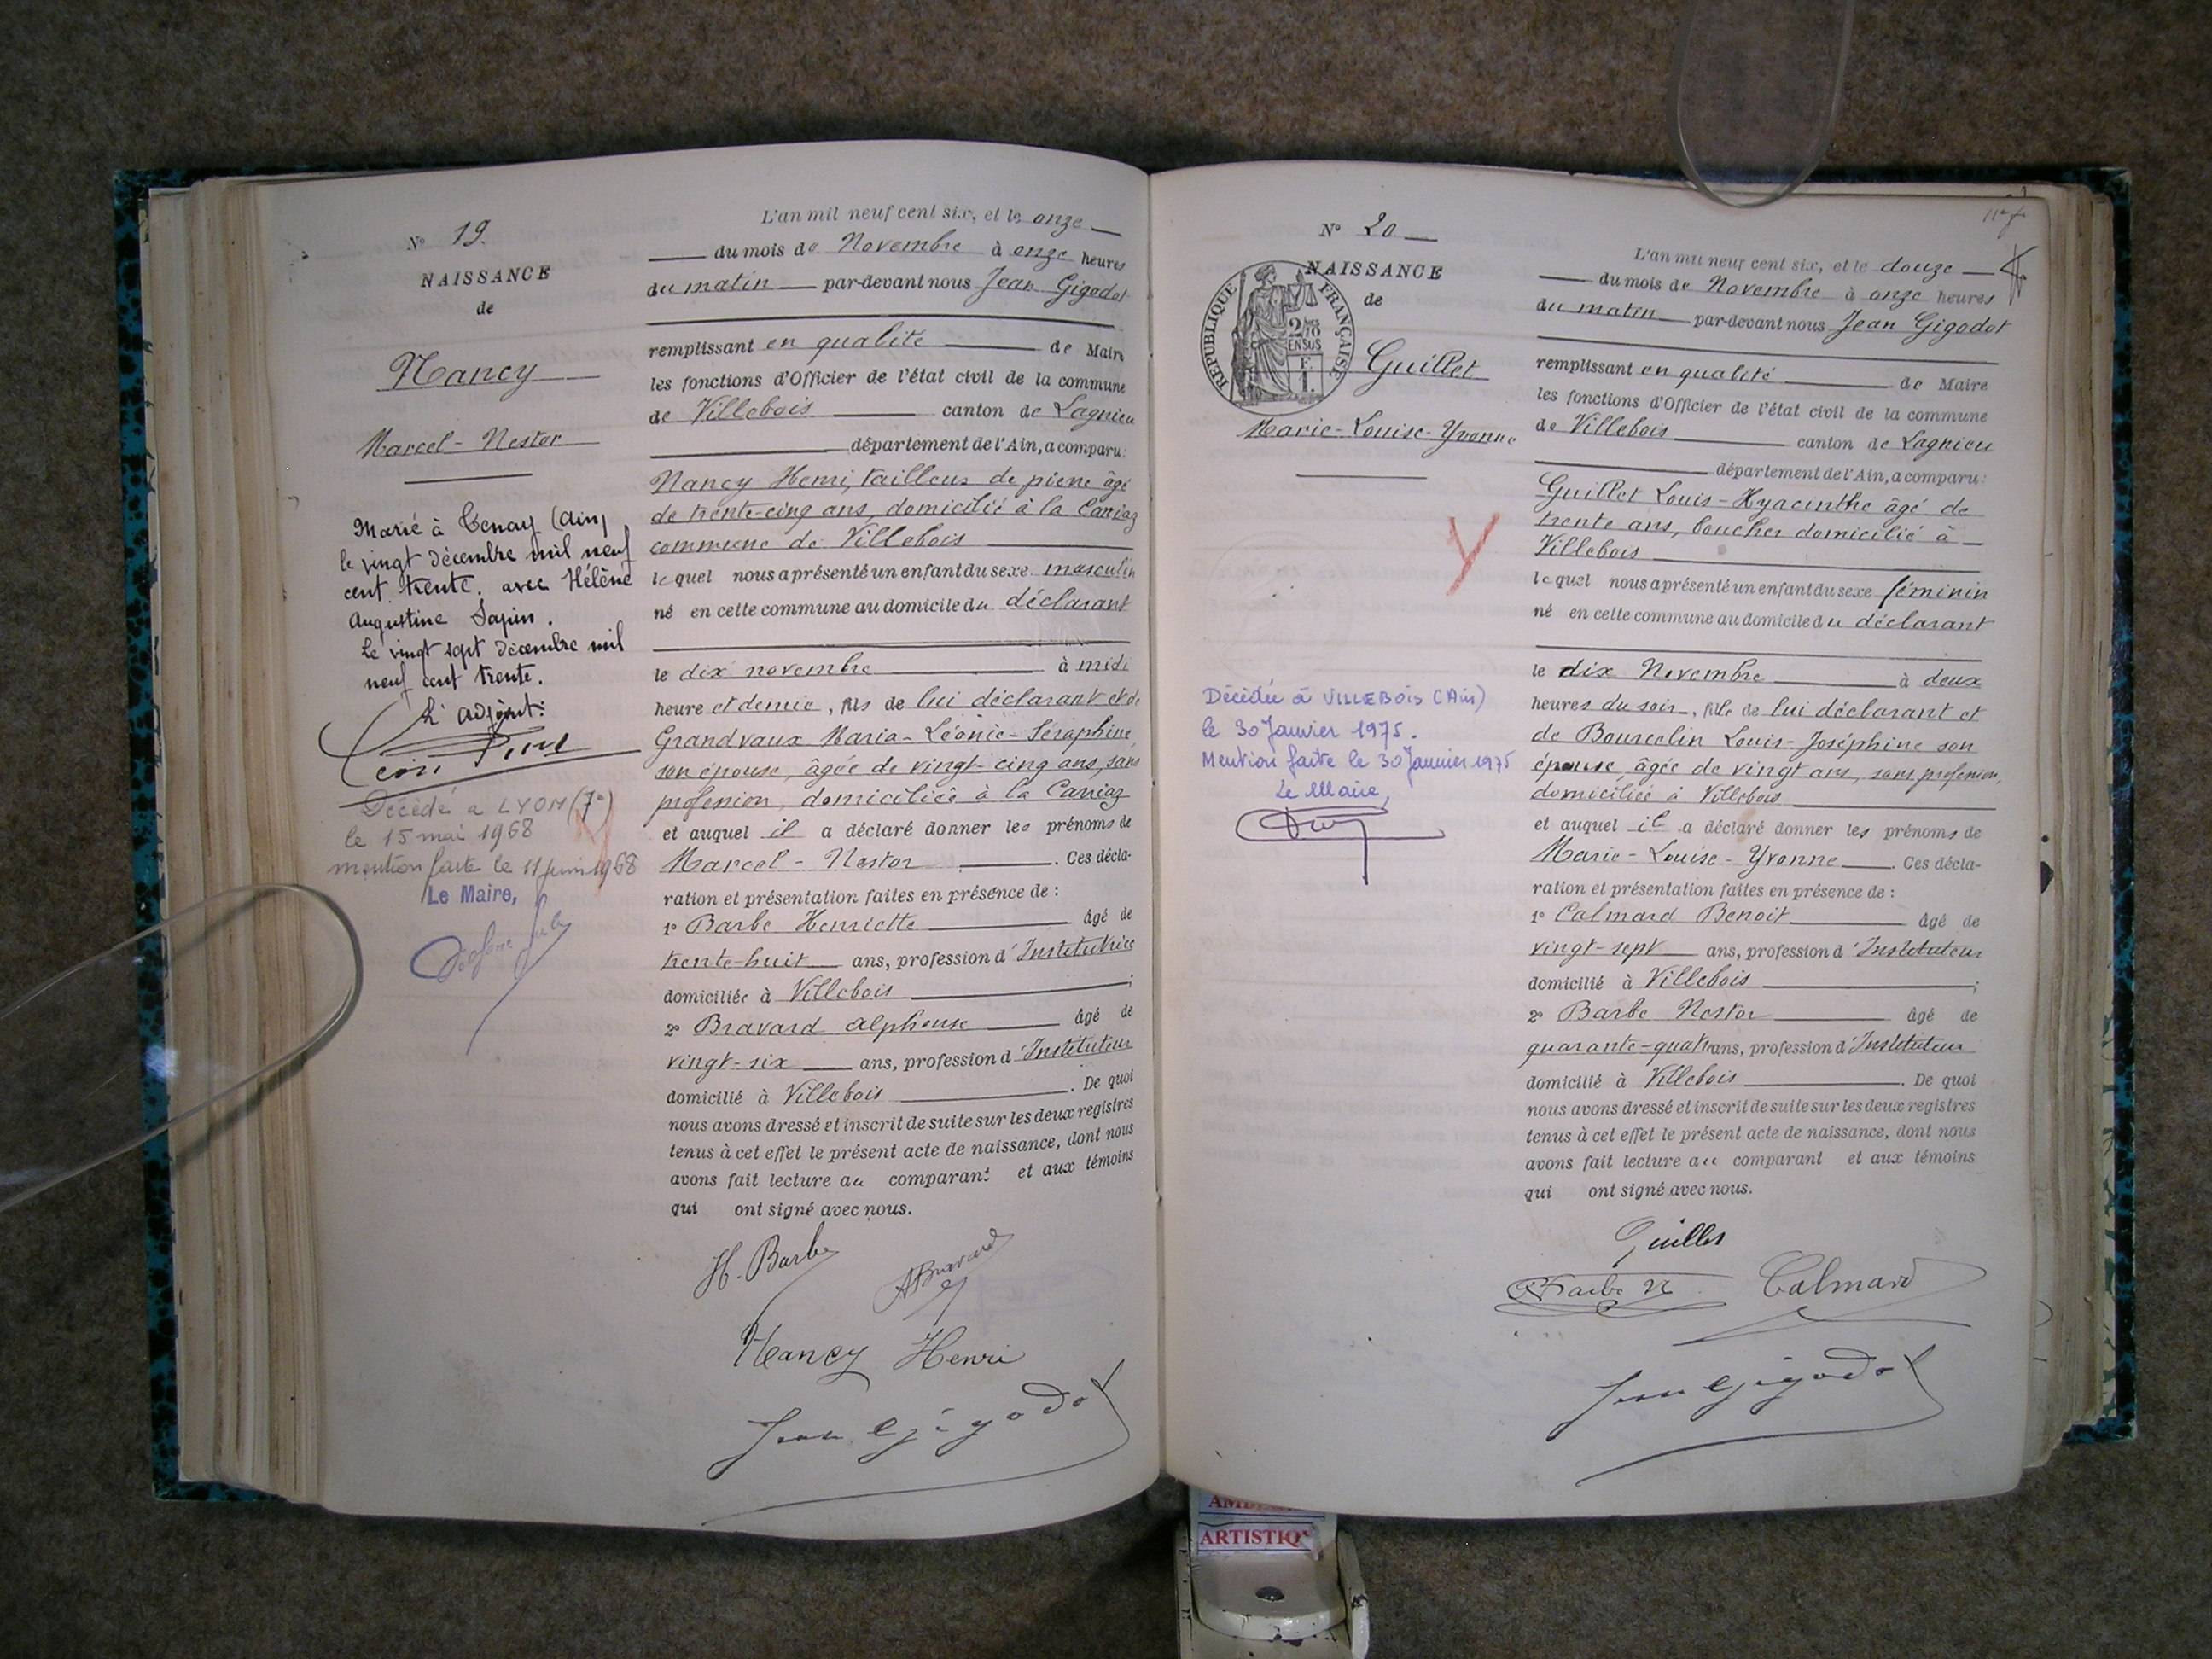 N° 19.
NAISSANCE
de
Nancy
Marcel-Nestor
Marié à Tenay (Ain)
le vingt décembre mil neuf
cent trente. avec Hélène
Augustine Sapin.
Le vingt sept décembre mil
neuf cent trente.
L'adjoint:
Décédé à LYON (7e)
le 15 mai 1968
mention faite le 11 juin 1968
Le Maire,
L'an mil neuf cent six, et le onze
du mois de Novembre à onze heures
du matin par-devant nous Jean Gigodot
remplissant en qualité de Maire
les fonctions d'Officier de l'état civil de la commune
de Villebois canton de Lagnieu
département de l'Ain, a comparu:
Nancy Henri, tailleur de pierre âgé
de trente-cinq ans, domicilié à la
commune de Villebois
lequel nous a présenté un enfant du sexe masculin
né en cette commune au domicile du déclarant
le dix novembre à midi
heure et demie, fils de lui déclarant et de
Grandvaux Maria-Léonie-Séraphine
son épouse, âgée de vingt-cinq ans, sans
profession, domiciliée à la
et auquel il a déclaré donner les prénoms de
Marcel-Nestor. Ces décla-
ration et présentation faites en présence de :
1° Barbe Henriette âgé de
trente-huit ans, profession d'Institutrice
domiciliée à Villebois ;
2° Bravard Alphonse âgé de
vingt-six ans, profession d'Instituteur
domicilié à Villebois. De quoi
nous avons dressé et inscrit de suite sur les deux registres
tenus à cet effet le présent acte de naissance, dont nous
avons fait lecture au comparant et aux témoins
qui ont signé avec nous.
H. Barbe ABravard
Nancy Henri
Jean Gigodot
117
N° 20
NAISSANCE
de
RÉPUBLIQUE FRANÇAISE
2/10
EN SUS
Guillet
Marie-Louise-Yvonne
Décédée à VILLEBOIS (Ain)
le 30 Janvier 1975.
Mention faite le 30 Janvier 1975
Le Maire,
L'an mil neuf cent six, et le douze
du mois de Novembre à onze heures
du matin par-devant nous Jean Gigodot
remplissant en qualité de Maire
les fonctions d'Officier de l'état civil de la commune
de Villebois canton de Lagnieu
département de l'Ain, a comparu:
Guillet Louis-Hyacinthe âgé de
trente ans, boucher domicilié à
Villebois
lequel nous a présenté un enfant du sexe féminin
né en cette commune au domicile du déclarant
le dix Novembre à deux
heures du soir, fille de lui déclarant et
de Bourcelin Louis-Joséphine son
épouse, âgée de vingt ans, sans profession,
domiciliée à Villebois
et auquel il a déclaré donner les prénoms de
Marie-Louise-Yvonne. Ces décla-
ration et présentation faites en présence de :
1° Calmard Benoit âgé de
vingt-sept ans, profession d'Instituteur
domicilié à Villebois ;
2° Barbe Nestor âgé de
quarante-quatre ans, profession d'Instituteur
domicilié à Villebois. De quoi
nous avons dressé et inscrit de suite sur les deux registres
tenus à cet effet le présent acte de naissance, dont nous
avons fait lecture au comparant et aux témoins
qui ont signé avec nous.
Guillet
Barbe N Calmard
Jean Gigodot
ARTISTIQ